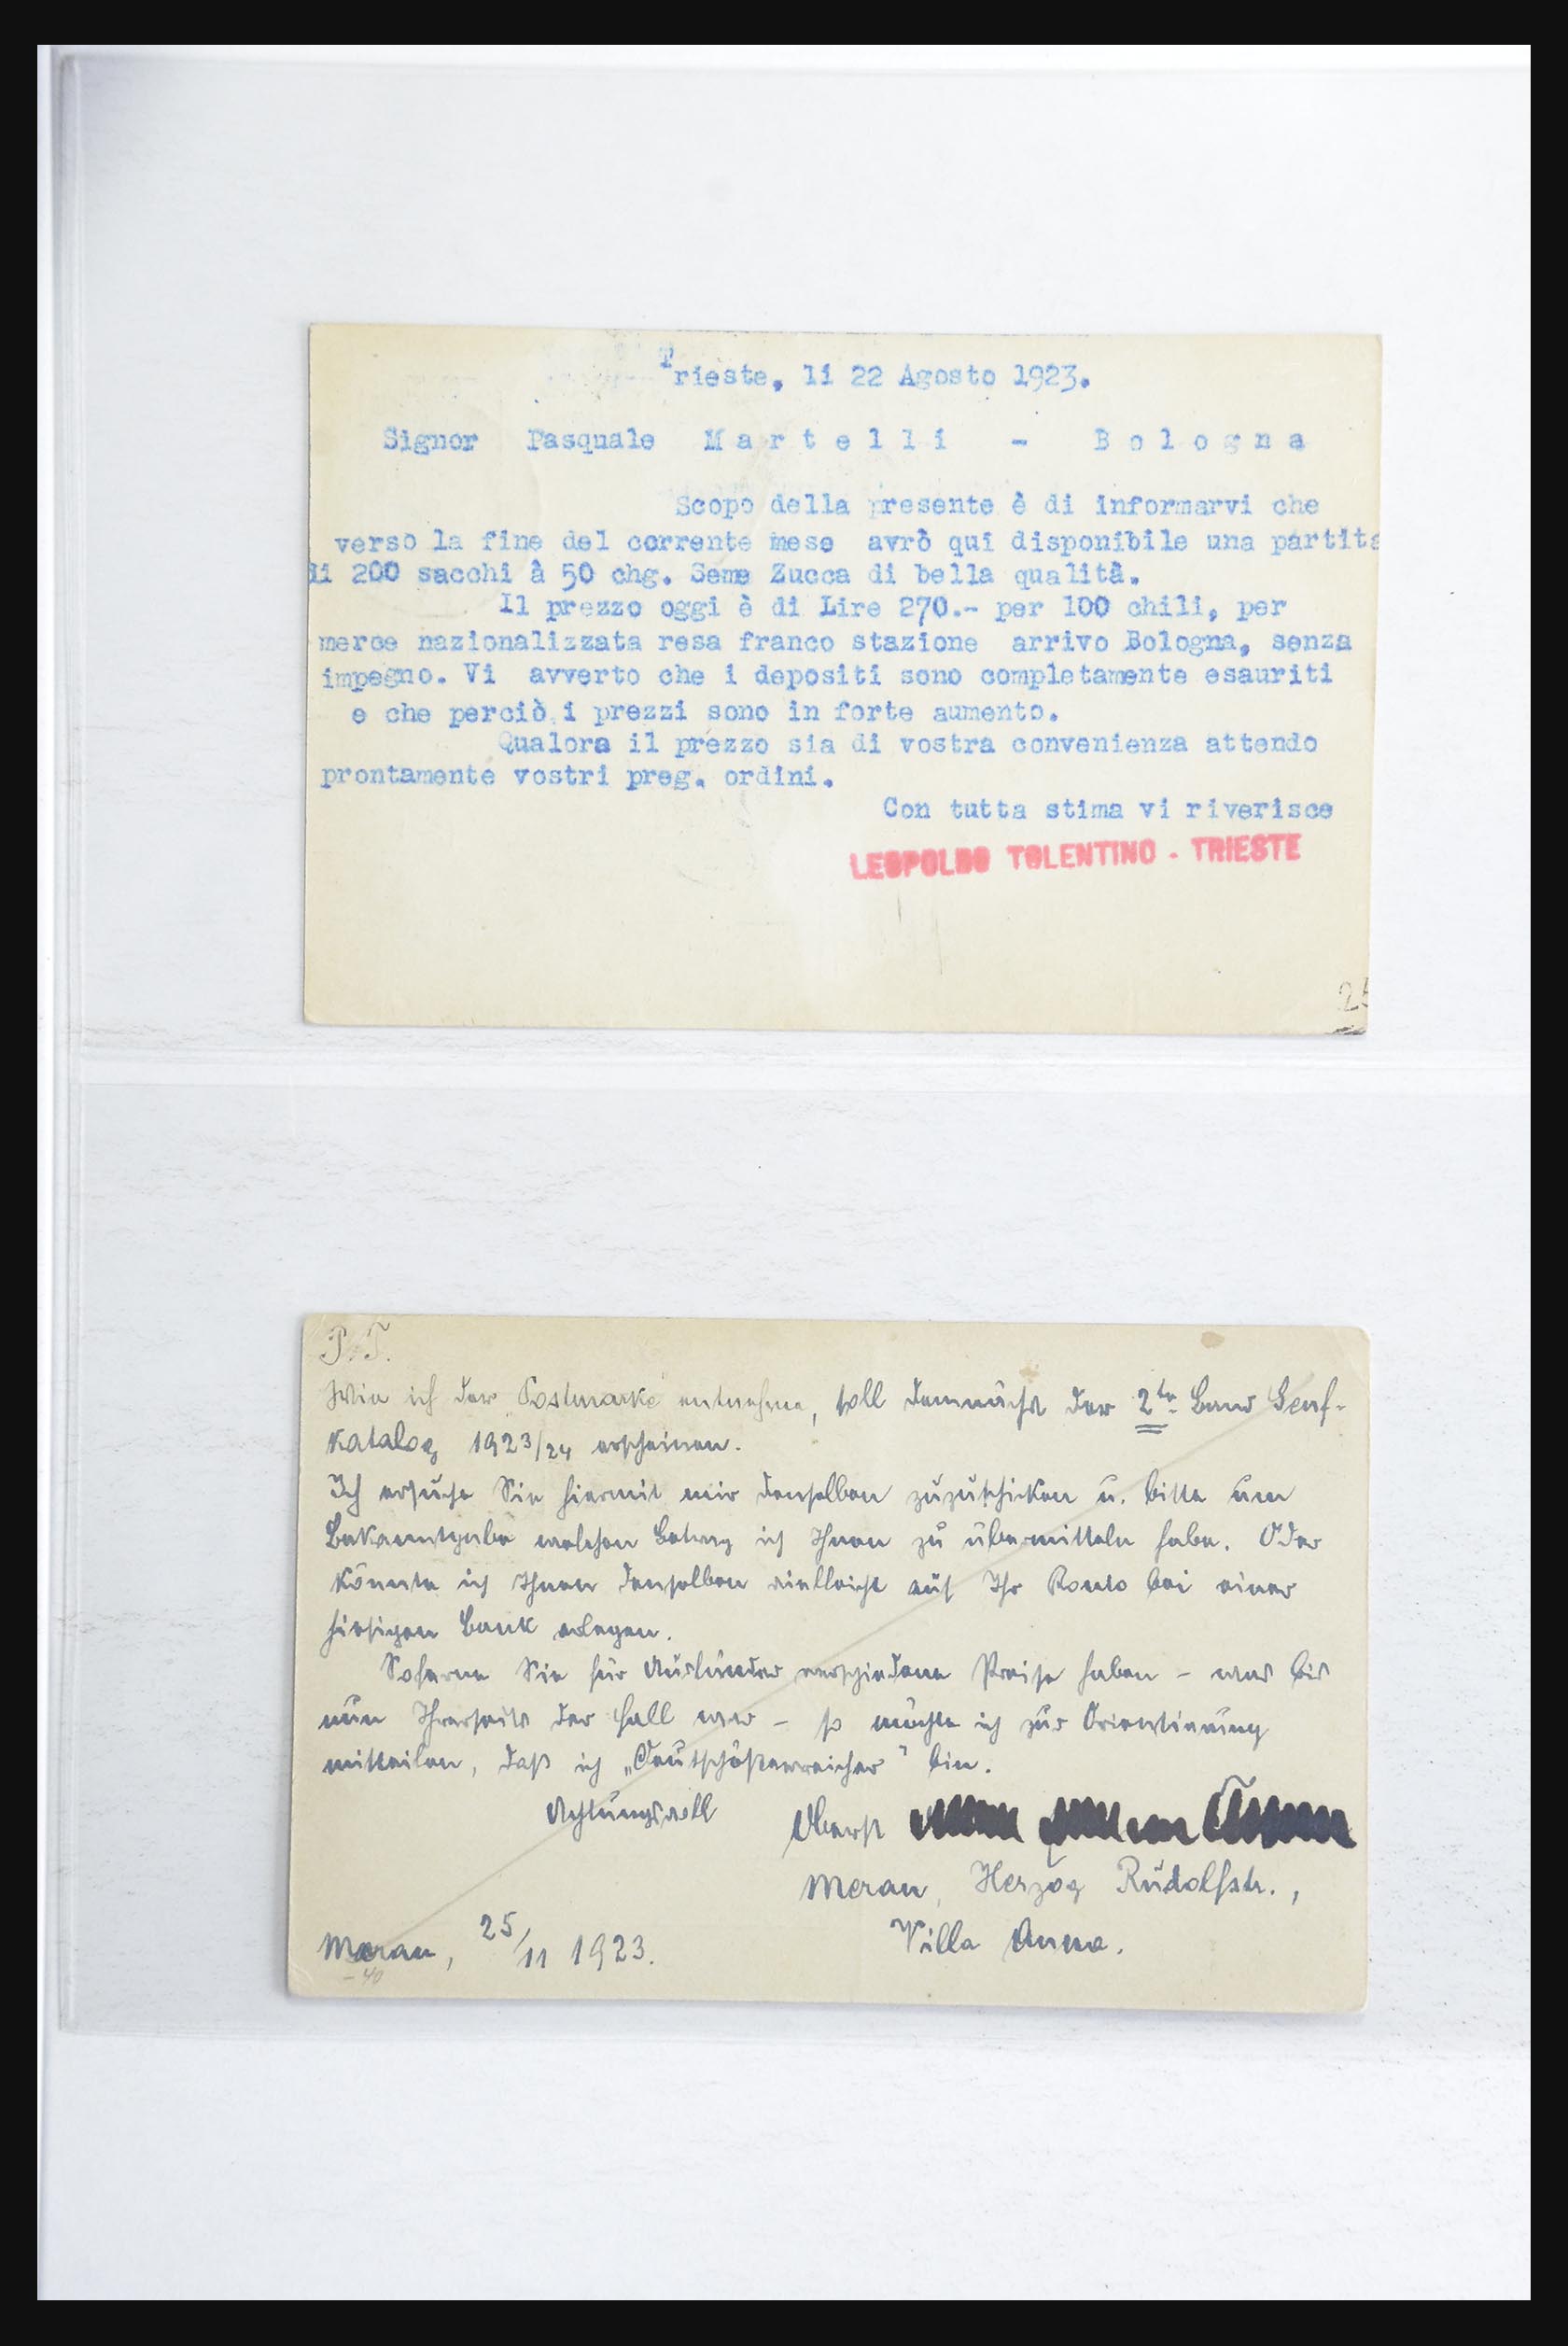 Trieste, li 22 Agosto 1923.
Signor Pasquale Martelli - Bologna
Scopo della presente è di informarvi che
verso la fine del corrente mese avrò qui disponibile una partita
di 200 sacchi à 50 chg. Seme Zucca di bella qualità.
Il prezzo oggi è di Lire 270.- per 100 chili, per
merce nazionalizzata resa franco stazione arrivo Bologna, senza
impegno. Vi avverto che i depositi sono completamente esauriti
e che perciò i prezzi sono in forte aumento.
Qualora il prezzo sia di vostra convenienza attendo
prontamente vostri preg. ordini.
Con tutta stima vi riverisce
LEOPOLDO TOLENTINO - TRIESTE
P.T.
Wie ich der Postmarke entnehme, soll demnächst der 2te Band Senf-
Katalog 1923/24 erscheinen.
Ich ersuche Sie hiermit mir denselben zuzuschicken u. bitte um
Bekanntgabe welchen Betrag ich Ihnen zu übermitteln habe. Oder
könnte ich Ihnen denselben vielleicht auf Ihr Konto bei einer
hiesigen Bank erlegen.
Soferne Sie für Ausländer verschiedene Preise haben - was bis
nun Ihrerseits der Fall war - so möchte ich zur Orientierung
mitteilen, daß ich „Deutschösterreicher" bin.
Achtungsvoll
Oberst
Meran, Herzog Rudolfstr.,
Villa Anna.
Meran, 25/11 1923.
- 40